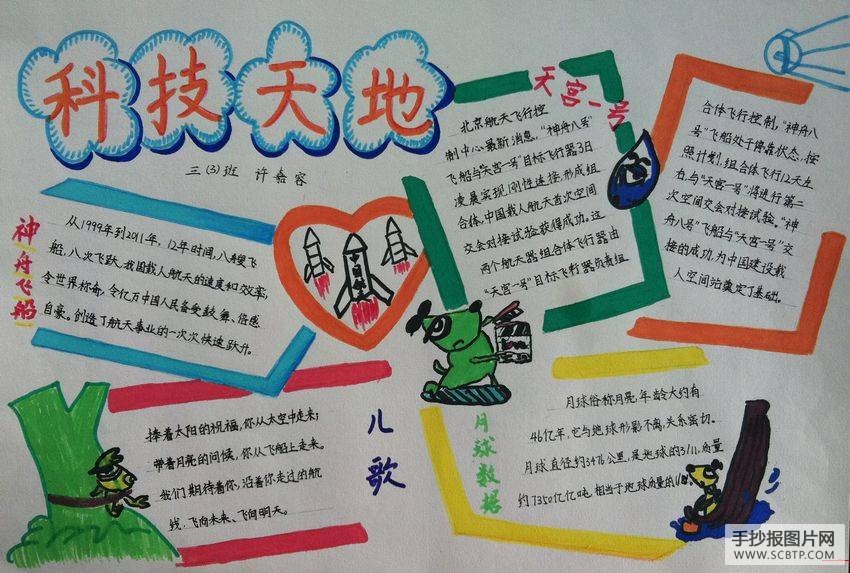 科技天地
三(3)班 许嘉容
神舟飞船
从1999年到2011年，12年时间，八艘飞
船，八次飞跃，我国载人航天的速度和效率，
令世界称奇，令亿万中国人民备受鼓舞、倍感
自豪。创造了航天事业的一次次快速跃升。
中国航天
天宫一号
北京航天飞行控
制中心最新消息，“神舟八号”
飞船与“天宫一号”目标飞行器3日
凌晨实现刚性连接，形成组
合体，中国载人航天首次空间
交会对接试验获得成功。这
两个航天器组合体飞行器由
“天宫一号”目标飞行器负责组
合体飞行控制，“神舟八
号”飞船处于停靠状态，按
照计划，组合体飞行12天左
右，与“天宫一号”将进行第二
次空间交会对接试验。“神
舟八号”飞船与“天宫一号”交
接的成功，为中国建设载
人空间站奠定了基础。
儿歌
捧着太阳的祝福，你从太空中走来；
带着月亮的问候，你从飞船上走来。
我们期待着你，沿着你走过的航
线，飞向未来、飞向明天。
月球数据
月球俗称月亮，年龄大约有
46亿年，它与地球形影不离，关系密切。
月球直径约3476公里，是地球的3/11，质量
约7350亿亿吨，相当于地球质量的
手抄报图片网
WWW.SCBTP.COM